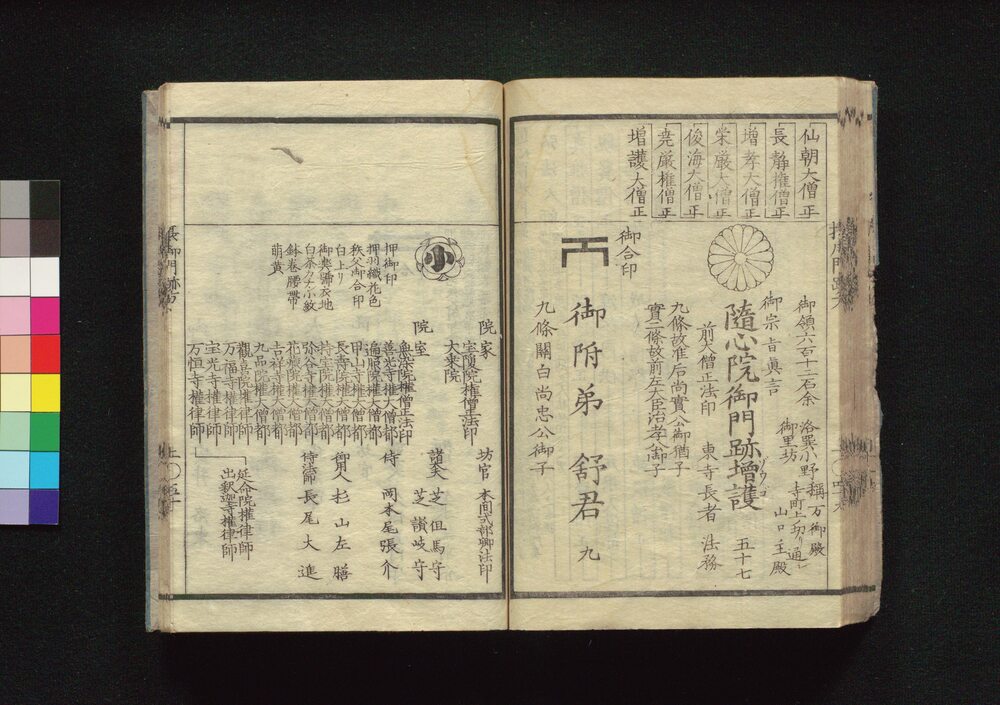 仙朝大僧正
長静權僧正
増孝大僧正
栄厳大僧正
俊海大僧正
尭厳權僧正
増護大僧正
御領六百十二石余
洛巽小野
稱万御殿
御里坊
寺町上切り通シ
山口主殿
御宗旨眞言
隨心院御門跡増護
五十七
前大僧正法印
東寺長者
法務
九條故准后尚實公御猶子
實二條故前左大臣治孝公御子
御合印
御附弟
舒君
九
九條關白尚忠公御子
小
押御印
押羽織花色
秩父御合印
白上り
白茶カナ小紋
鉢巻腰帯
萌黄
院家
大乗院
院室
善光寺權大僧都
遍照院權大僧都
甲山寺權大僧都
長壽院權大僧都
持宝院權大僧都
弥谷寺權大僧都
吉祥寺權大僧都
九品院權大僧都
觀喜院權律師
万福寺權律師
宝光寺權律師
万恒寺權律師
延命院權律師
出釈迦寺權律師
坊官
本間式部卿法印
諸大夫
芝但馬守
芝讃岐守
侍
岡本尾張介
御用人
杉山左膳
侍法師
長尾大進
上